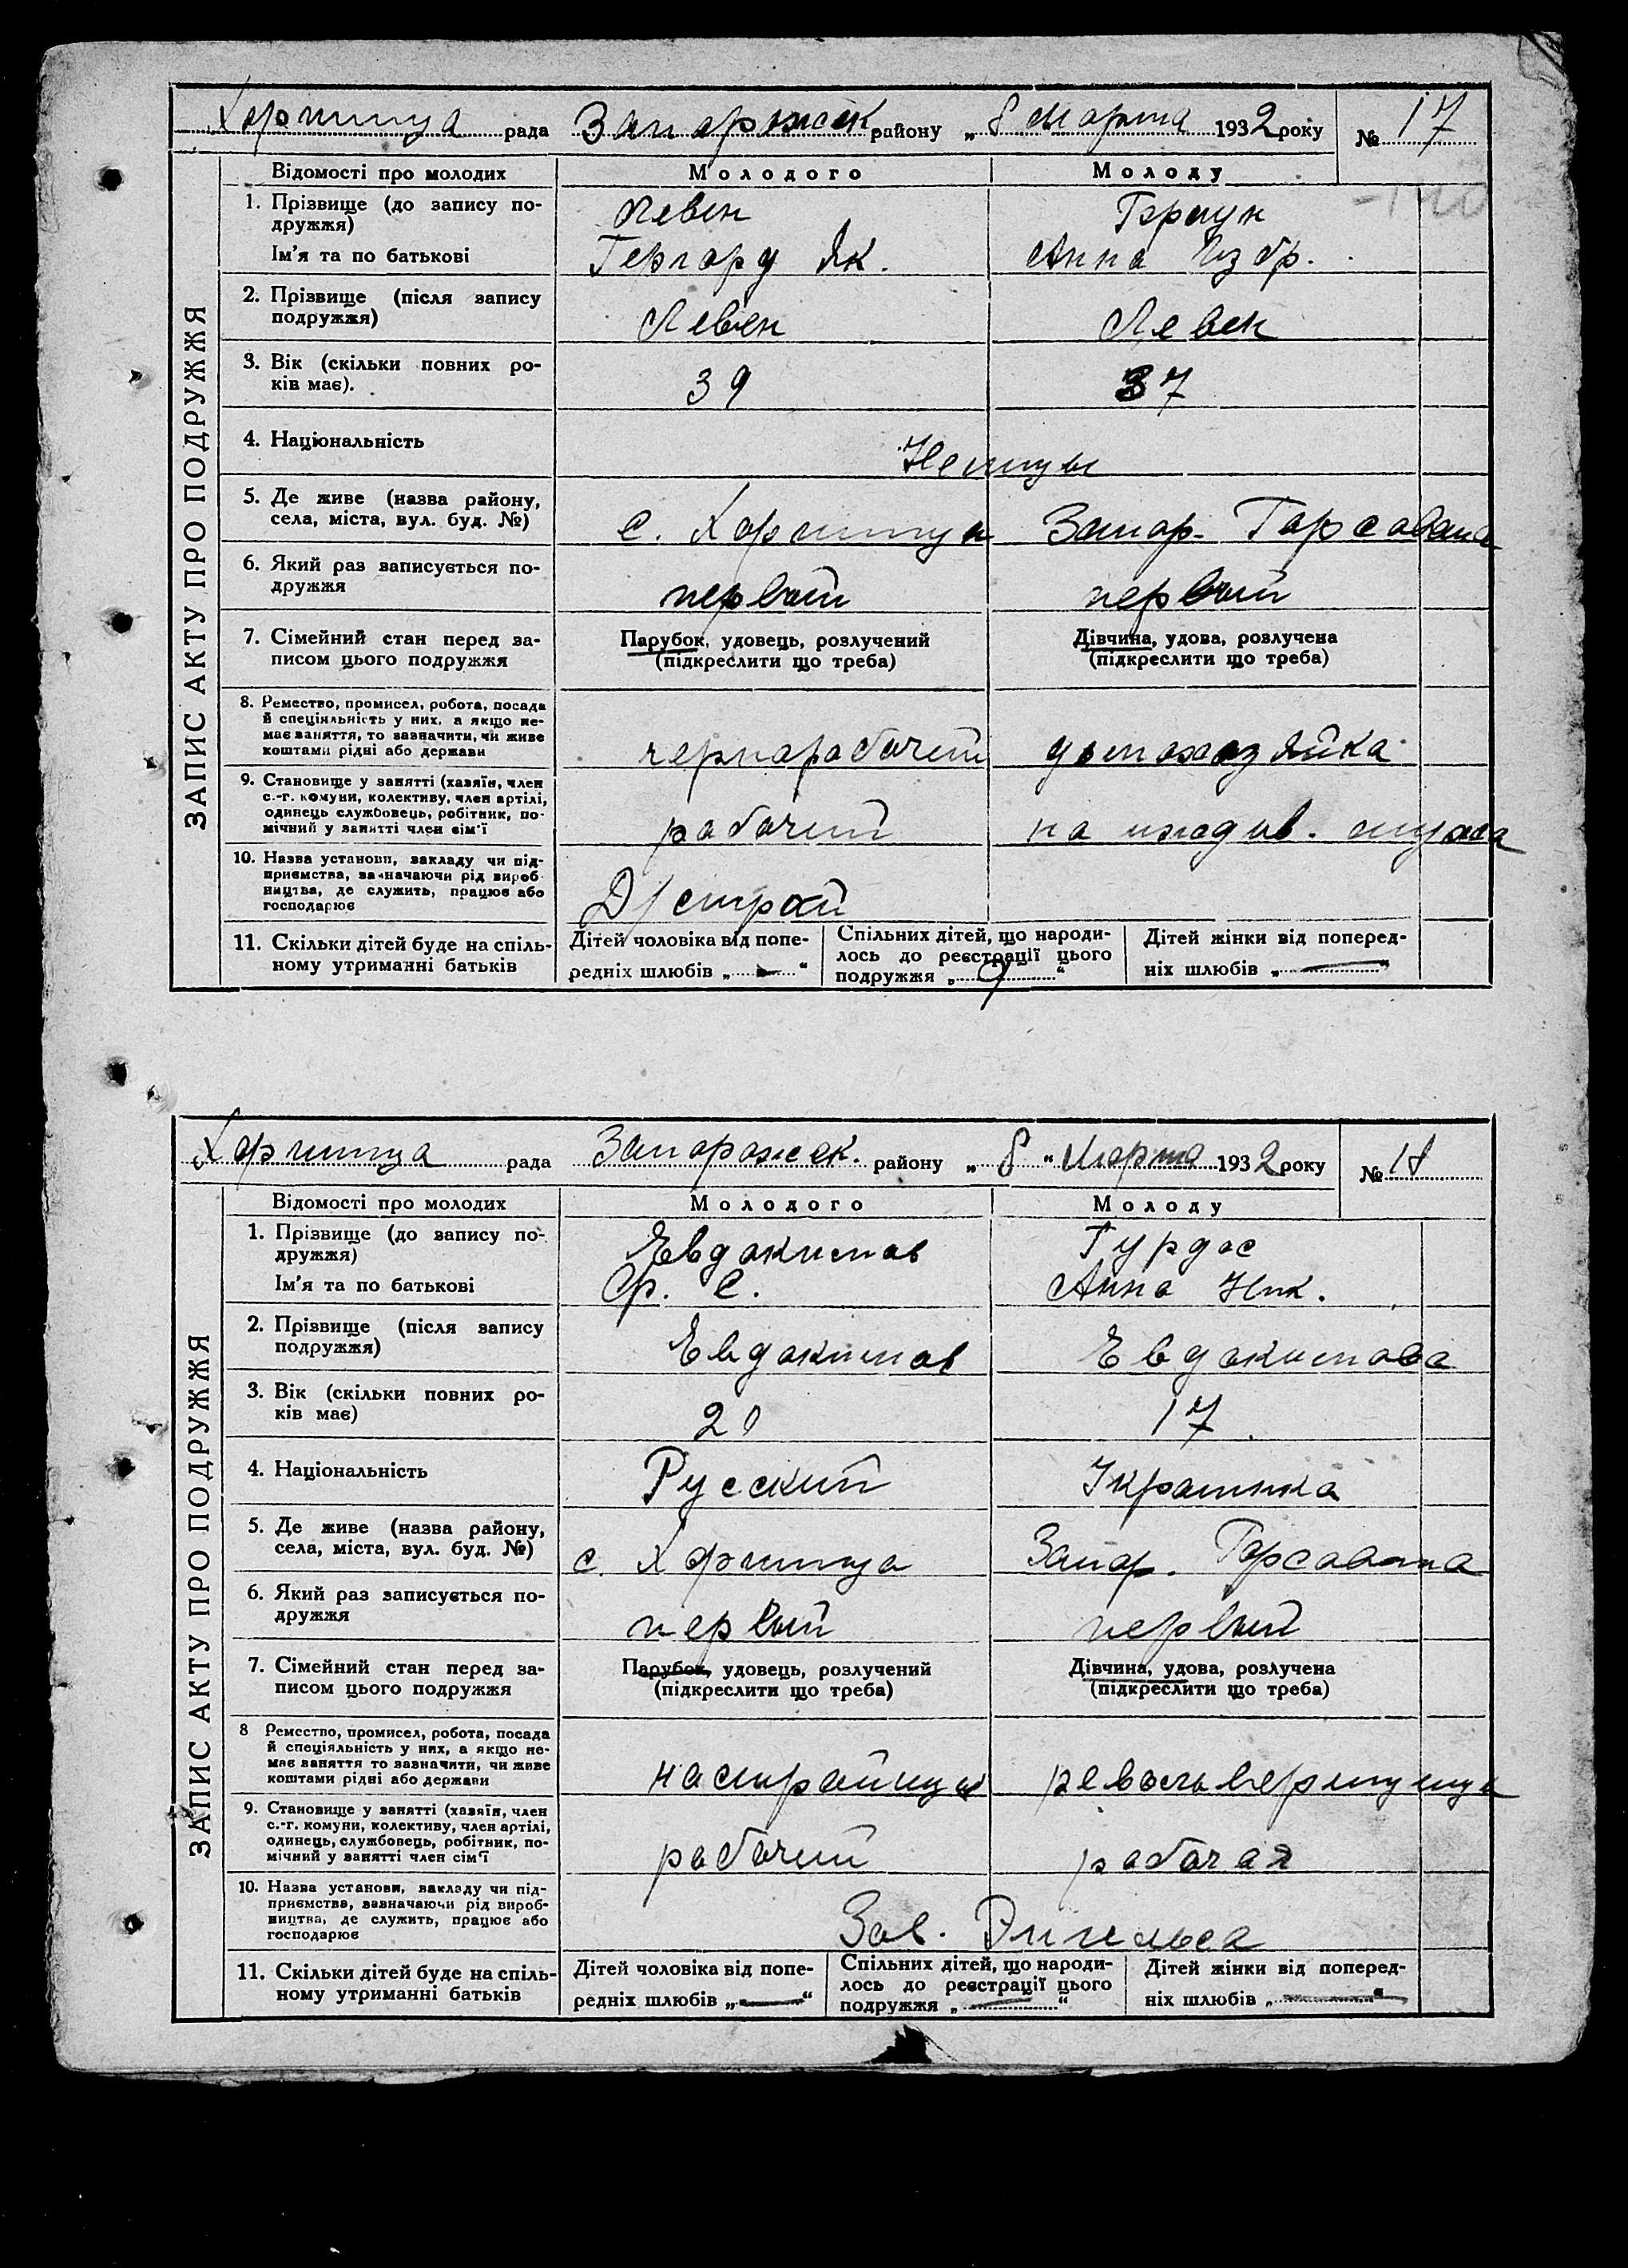 Хортица рада Запорожск району „ 8 Марта 1932 року № 17
ЗАПИС АКТУ ПРО ПОДРУЖЖЯ
Відомості про молодих Молодого Молоду
1. Прізвище (до запису по-
дружжя)
Левен
Ім'я та по батькові
Гергард Як. Анна
2. Прізвище (після запису
подружжя)
Левен Левен
3. Вік (скільки повних ро-
ків має).
39 37
4. Національність
Немцы
5. Де живе (назва району,
села, міста, вул. буд. №)
с. Хортица Запор. Горсовета
6. Який раз записується по-
дружжя
первый первый
7. Сімейний стан перед за-
писом цього подружжя
Парубок, удовець, розлучений
(підкреслити що треба)
Дівчина, удова, розлучена
(підкреслити що треба)
8. Ремество, промисел, робота, посада
й спеціяльність у них, а якщо не-
має заняття, то зазначити, чи живе
коштами рідні або держави
чернорабочий домохозяйка
9. Становище у занятті (хазяїн, член
с.-г. комуни, колективу, член артілі,
одинець службовець, робітник, по-
мічний у занятті член сім'ї
рабочий на иждив. мужа
10. Назва установи, закладу чи під-
приємства, зазначаючи рід вироб-
ництва, де служить, працює або
господарює
Д/строй
11. Скільки дітей буде на спіль-
ному утриманні батьків
Дітей чоловіка від попе-
редніх шлюбів „ — “
Спільних дітей, що народи-
лось до реєстрації цього
подружжя „ “
Дітей жінки від поперед-
ніх шлюбів „ — “
Хортица рада Запорожск. району „ 8 “ Марта 1932 року № 18
ЗАПИС АКТУ ПРО ПОДРУЖЖЯ
Відомості про молодих Молодого Молоду
1. Прізвище (до запису по-
дружжя)
Евдокимов Гурдос
Ім'я та по батькові
Фр. С. Анна Ник.
2. Прізвище (після запису
подружжя)
Евдокимов Евдокимова
3. Вік (скільки повних ро-
ків має)
20 17
4. Національність
Русский Украинка
5. Де живе (назва району,
села, міста, вул. буд. №)
с. Хортица Запор. Горсовета
6. Який раз записується по-
дружжя
первый первый
7. Сімейний стан перед за-
писом цього подружжя
Парубок, удовець, розлучений
(підкреслити що треба)
Дівчина, удова, розлучена
(підкреслити що треба)
8 Ремество, промисел, робота, посада
й спеціяльність у них, а якщо не-
має заняття то зазначити, чи живе
коштами рідні або держави
настройщик револьверщица
9. Становище у занятті (хазяїн, член
с.-г. комуни, колективу, член артілі,
одинець, службовець, робітник, по-
мічний у занятті член сім'ї
рабочий рабочая
10. Назва установи, закладу чи під-
приємства, зазначаючи рід вироб-
ництва, де служить, працює або
господарює
Зав. Энгельса
11. Скільки дітей буде на спіль-
ному утриманні батьків
Дітей чоловіка від попе-
редніх шлюбів „ — “
Спільних дітей, що народи-
лось до реєстрації цього
подружжя „ — “
Дітей жінки від поперед-
ніх шлюбів „ — “